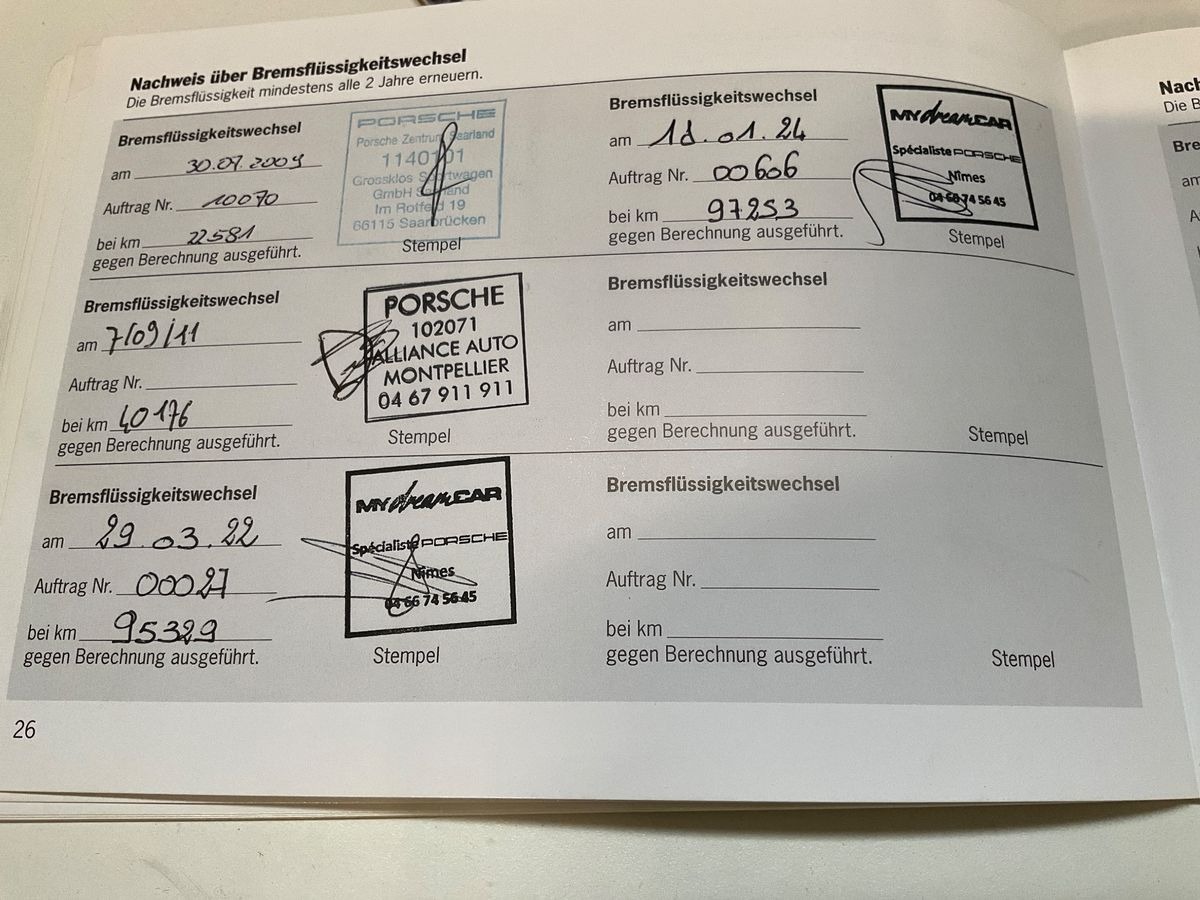 Nachweis über Bremsflüssigkeitswechsel
Die Bremsflüssigkeit mindestens alle 2 Jahre erneuern.
Bremsflüssigkeitswechsel
am 30.07.2009
Auftrag Nr. 10070
bei km 22581
gegen Berechnung ausgeführt.
PORSCHE
Porsche Zentrum Saarland
1140101
Grossklos Sportwagen
GmbH Saarland
Im Rotfeld 19
66115 Saarbrücken
Stempel
Bremsflüssigkeitswechsel
am 7/09/11
Auftrag Nr.
bei km 40176
gegen Berechnung ausgeführt.
PORSCHE
102071
ALLIANCE AUTO
MONTPELLIER
04 67 911 911
Stempel
Bremsflüssigkeitswechsel
am 29.03.22
Auftrag Nr. 00027
bei km 95329
gegen Berechnung ausgeführt.
MY dream CAR
Spécialiste PORSCHE
Nîmes
04 66 74 56 45
Stempel
Bremsflüssigkeitswechsel
am .01.24
Auftrag Nr. 00606
bei km 97253
gegen Berechnung ausgeführt.
MY dream CAR
Spécialiste PORSCHE
Nîmes
04 66 74 56 45
Stempel
Bremsflüssigkeitswechsel
am
Auftrag Nr.
bei km
gegen Berechnung ausgeführt.
Stempel
Bremsflüssigkeitswechsel
am
Auftrag Nr.
bei km
gegen Berechnung ausgeführt.
Stempel
26